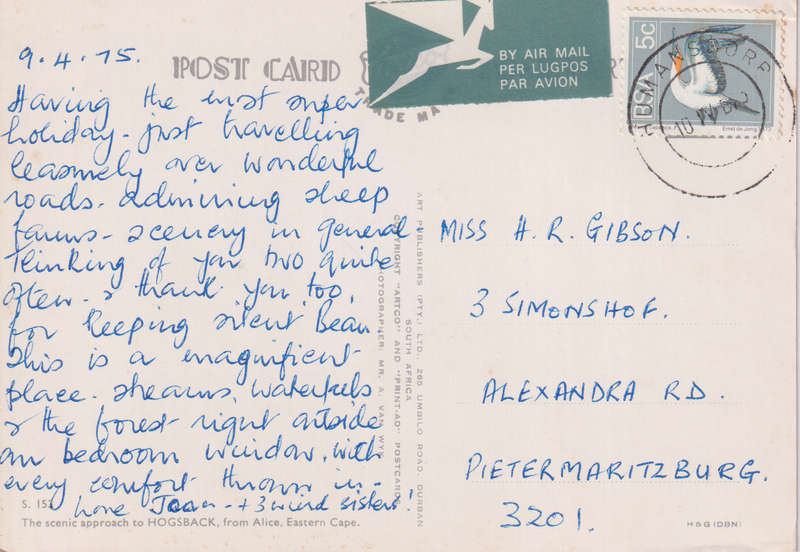 9.4.75.
POST CARD
TRADE MA
BY AIR MAIL
PER LUGPOS
PAR AVION
RSA 5c
Ernst de Jong
HUMANSDORP
Having the most super
holiday - just travelling
leasurely over wonderful
roads - admiring sheep
farms - scenery in general
Thinking of you two quite
often - & thank you, too,
for keeping silent, Beau.
This is a magnificent
place. Streams, waterfalls
& the forest right outside
our bedroom window, with
every comfort thrown in -
love Joan - + 3 weird sisters!
S. 153
The scenic approach to HOGSBACK, from Alice, Eastern Cape.
PHOTOGRAPHER MR. A. VAN WYK
COPYRIGHT "ARTCO" AND "PRINT-AD" POSTCARD
SOUTH AFRICA
ART PUBLISHERS (PTY.) LTD., 260, UMBILO ROAD, DURBAN
MISS H. R. GIBSON.
3 SIMONSHOF.
ALEXANDRA RD.
PIETERMARITZBURG.
3201.
H & G (DBN)